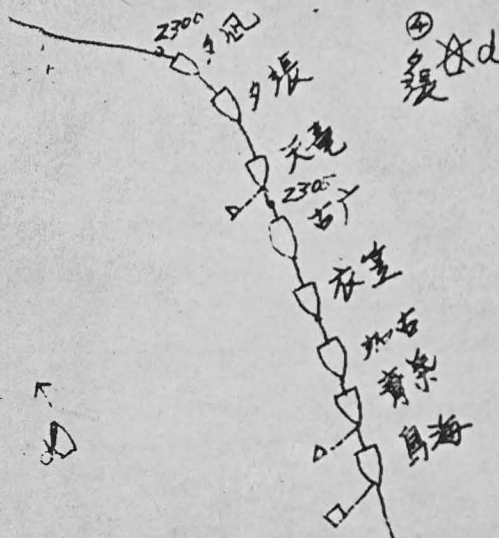 2300
夕凪
夕張
天竜
2305
古
衣笠
加古
青葉
鳥海
④
夕張
d